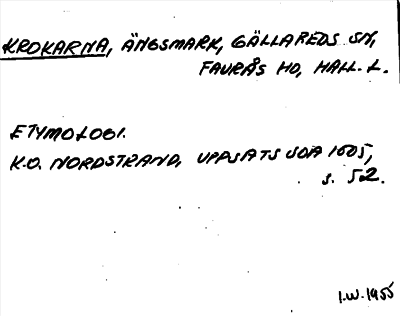 KROKARNA, ÄNGSMARK, GÄLLAREDS SN,
FAURÅS HD, HALL. L.
ETYMOLOGI.
K.O. NORDSTRAND, UPPSATS UDA 1605,
s. 52.
I.W. 1955